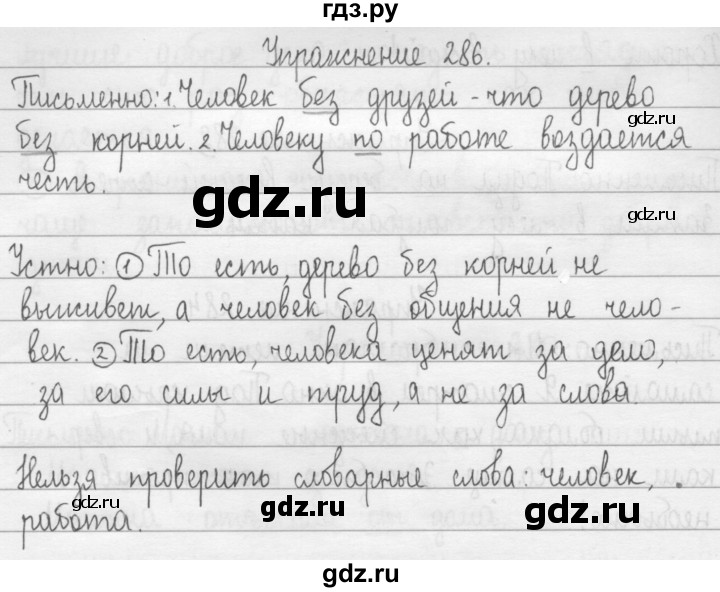 гдз.ру
Упражнение 286.
Письменно: 1. Человек без друзей - что дерево
без корней. 2. Человеку по работе воздается
честь.
gdz.ru
gdz.ru
Устно: ① То есть, дерево без корней не
выживет, а человек без общения не чело-
век. ② То есть, человека ценят за дело,
за его силы и труд, а не за слова.
Нельзя проверить словарные слова: человек,
gdz.ru
gdz.ru
gdz.ru
работа.
gdz.ru